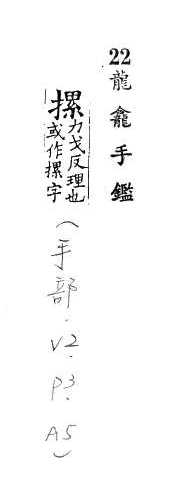 22龍龕手鑑
摞力戈反理也
或作摞字
(手部.V2.P3.A5)